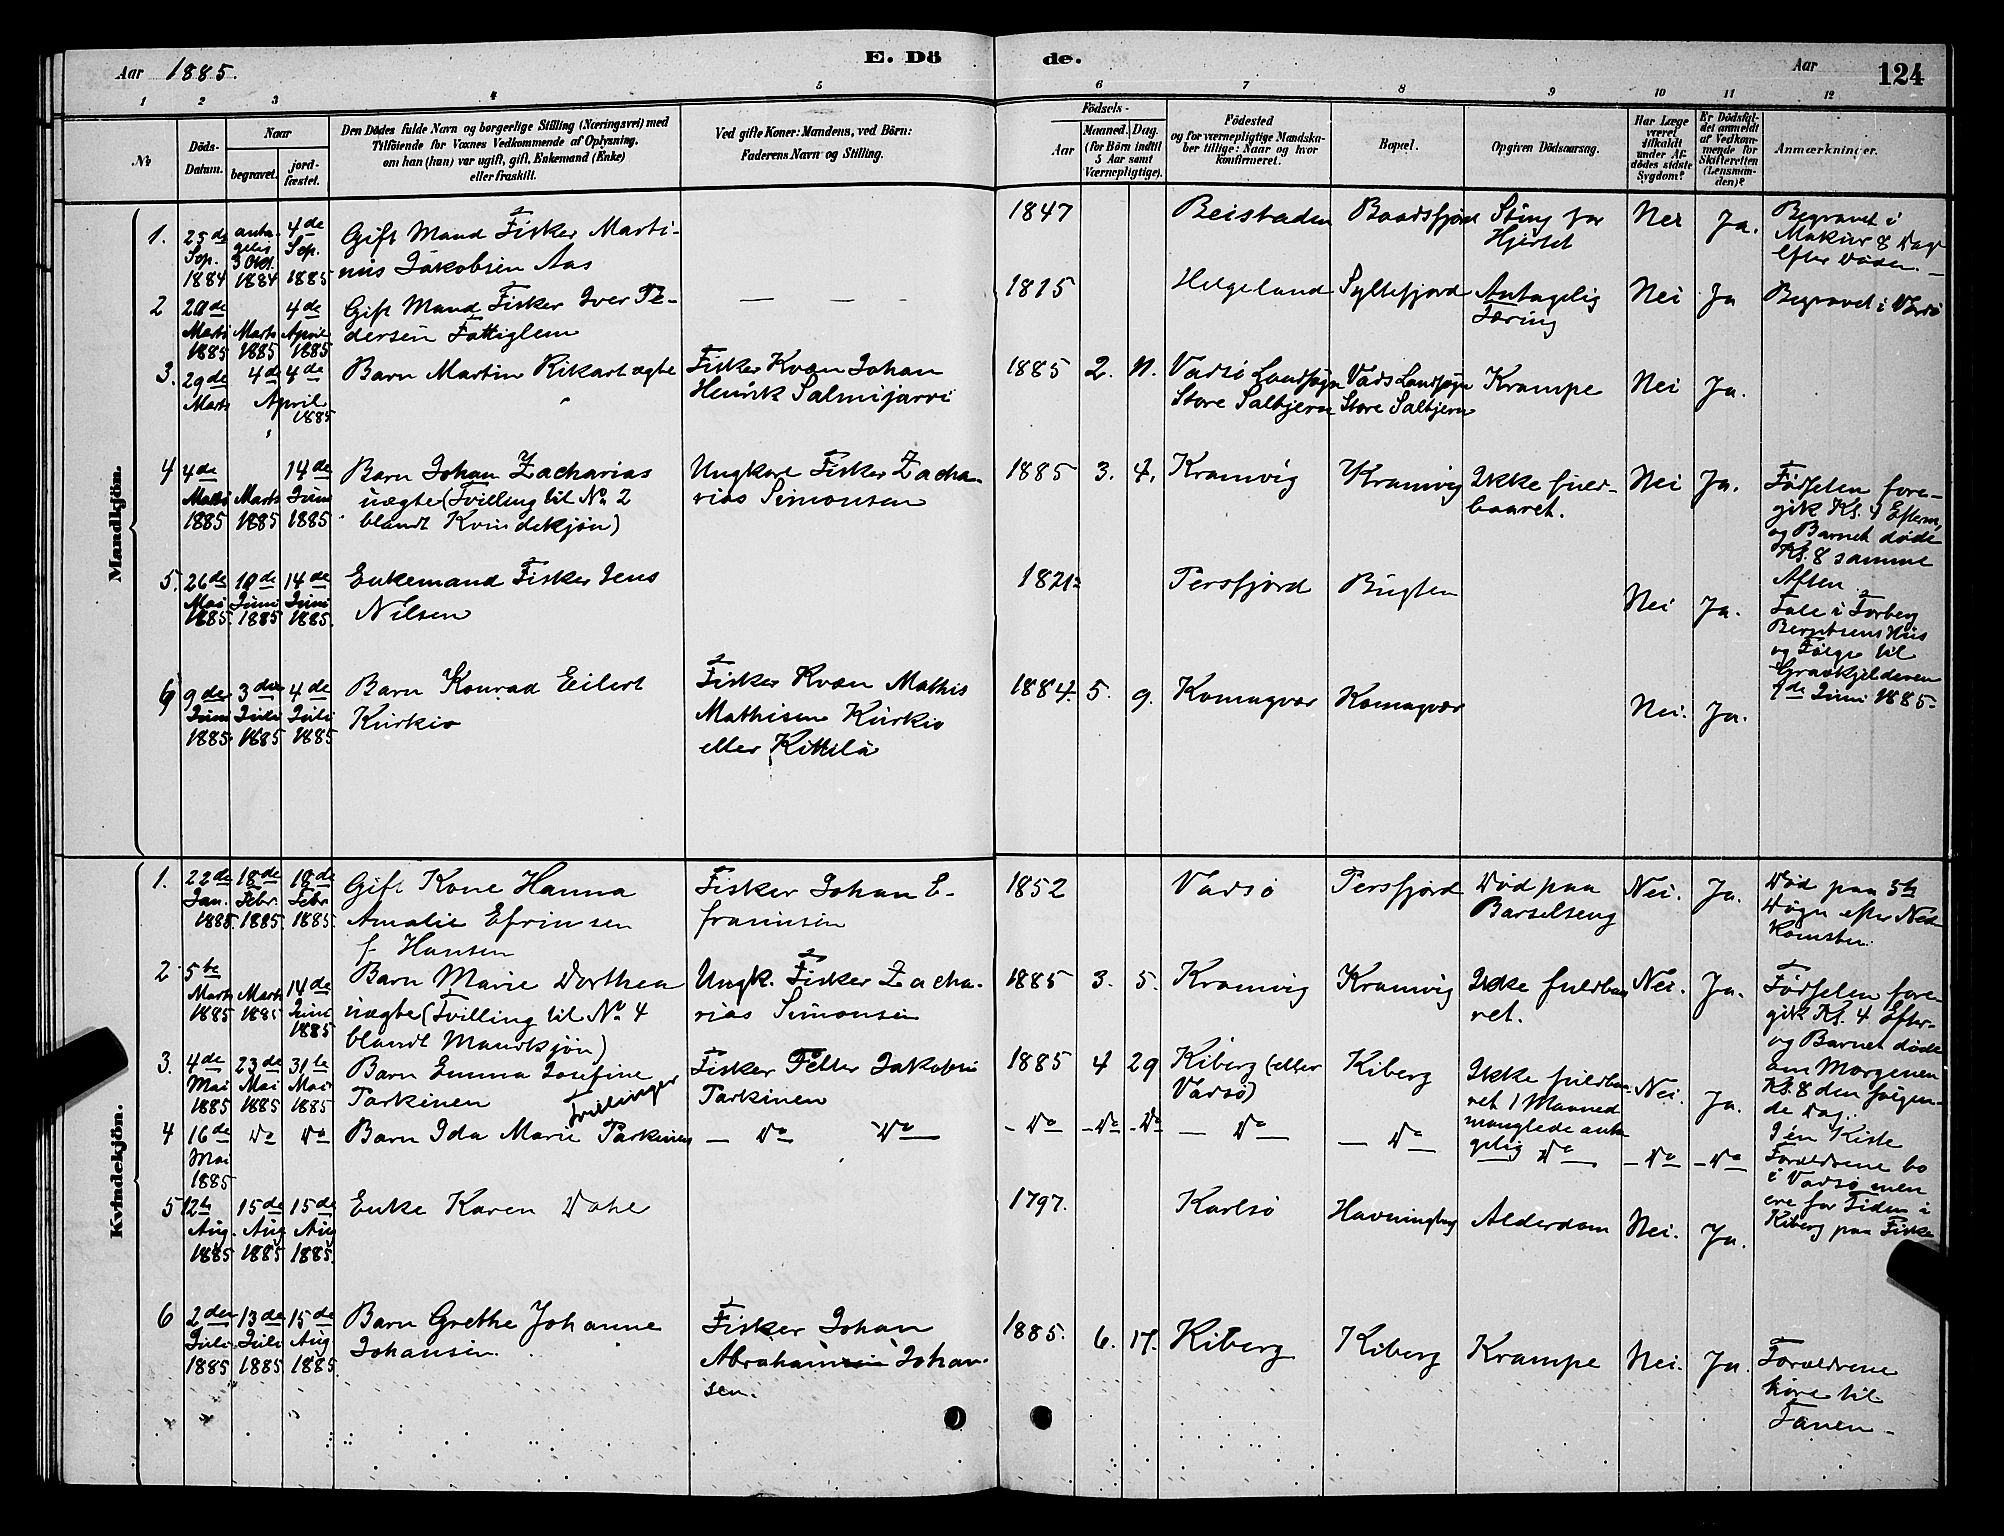 Aar 1885.
E. Dö
de.
Aar
124
1 2 3 4 5 6 7 8 9 10 11 12
No
Döds-
Datum.
Naar
begravet.
jord-
fæstet.
Den Dödes fulde Navn og borgerlige Stilling (Næringsvei) med
Tilföiende for Voxnes Vedkommende af Oplysning,
om han (hun) var ugift, gift, Enkemand (Enke)
eller fraskilt.
Ved gifte Koner: Mandens, ved Börn:
Faderens Navn og Stilling.
Födsels-
Aar
Maaned. Dag.
(for Börn indtil
5 Aar samt
Værnepligtige).
Födested
og for værnepligtige Mandska-
ber tillige: Naar og hvor
konfirmeret.
Bopæl.
Opgiven Dödsaarsag.
Har Læge
været
tilkaldt
under Af-
dödes sidste
Sygdom?
Er Dödsfal-
det anmeldt
af Vedkom-
mende for
Skifteretten
(Lensman-
den)?
Anmærkninger.
Mandkjön.
1.
25de
Sep.
1884
anta-
gelig
3 Okt.
1884
4de
Sep.
1885
Gift Mand Fisker Marti-
nus Jakobsen Aas
1847
Beistaden
Baadsfjord
Sting for
Hjertet
Nei
Ja.
Begravet i
Makur 8 Dage
efter Døden.
2
20de
Marts
1885
Marts
1885
4de
April
1885
Gift Mand Fisker Iver Pe-
dersen Fattiglem
— — —
1815
Helgeland
Syltefjord
Antagelig
Tæring
Nei
Ja
Begravet i Vardø
3.
29de
Marts
4de
4de
April
1885
Barn Martin Rikart ægte
Fisker Kvæn Johan
Henrik Salmijarvi
1885
2.
11.
Vadsø Landsogn
Store Salttjern
Vads Landsogn
Store Salttjern
Krampe
Nei
Ja.
4
4de
Marts
1885
Marts
1885
14de
Juni
1885
Barn Johan Zacharias
uægte (Tvilling til No. 2
blandt Kvindekjøn)
Ungkarl Fisker Zacha-
rias Simonsen
1885
3.
4.
Kramvig
Kramvig
Ikke fuld-
baaret.
Nei
Ja.
Fødselen fore-
gik Kl. 4 Efterm,
og Barnet døde
Kl. 8 samme
Aften
5.
26de
Mai
1885
10de
Juni
1885
14de
Juni
1885.
Enkemand Fisker Jens
Nilsen
1821
Persfjord
Bugten
Nei
Ja.
Tale i Torberg
Berntsens Hus
og Følge til
Gravkjelderen
1de Juni 1885.
6
9de
Juni
1885.
3die
Juli
1885
4de
Juli
1885
Barn Konrad Eilert
Kurkio
Fisker Kvæn Mathis
Mathisen Kurkio
eller Kittilä
1884.
5.
9.
Komagvær
Komagvær
Nei.
Ja.
Kvindekjön.
1.
22de
Jan.
1885.
18de
Febr.
1885.
19de
Febr
1885.
Gift Kone Hanna
Amalie Efrimsen
f. Hansen
Fisker Johan E-
fraimsen
1852
Vadsø
Persfjord
Død paa
Barselseng
Nei.
Ja.
Død paa 5te
Døgn efter Ned-
komsten.
2.
5te
Marts
1885
Marts
1885
14de
Juni
1885
Barn Marie Dorthea
uægte (Tvilling til No. 4
blandt Mandkjøn)
Ungk. Fisker Zacha-
rias Simonsen
1885
3.
5.
Kramvig
Kramvig
Ikke fuldbaa
ret.
Nei.
Ja.
Fødselen fore-
gik Kl. 4 Efter-
og Barnet døde
om Morgenen
Kl. 8 den følgen-
de Dag.
3.
4de
Mai
1885
23de
Mai
1885
31te
Mai
1885
Barn Emma Josefine
Parkinen
Tvillinger
Fisker Petter Jakobsen
Parkinen
1885
4
29
Kiberg (eller
Vadsø)
Kiberg
Ikke fuldbaa-
ret 1 Maaned
manglede anta
gelig
Nei.
Ja.
I én Kiste
Forældrene bo
i Vadsø men
ere for Tiden i
Kiberg paa Fiske
4
16de
Mai
1885
Do
Do
Barn Ida Marie Parkinen
— Do Do —
- Do
- Do
- Do
— Do —
— Do —
Do —
- Do -
- Do -
5
12te
Aug.
1885
15de
Aug
1885
15de
Aug
1885.
Enke Karen Dahl
1797.
Karlsø
Havningberg
Alderdom
Nei.
Ja.
6
2den
Juli
1885
13de
Juli
1885
15de
Aug
1885.
Barn Grethe Johanne
Johansen.
Fisker Johan
Abrahamsen Johan-
sen.
1885.
6.
17.
Kiberg
Kiberg
Krampe
Nei.
Ja.
Forældrene
høre til
Tanen